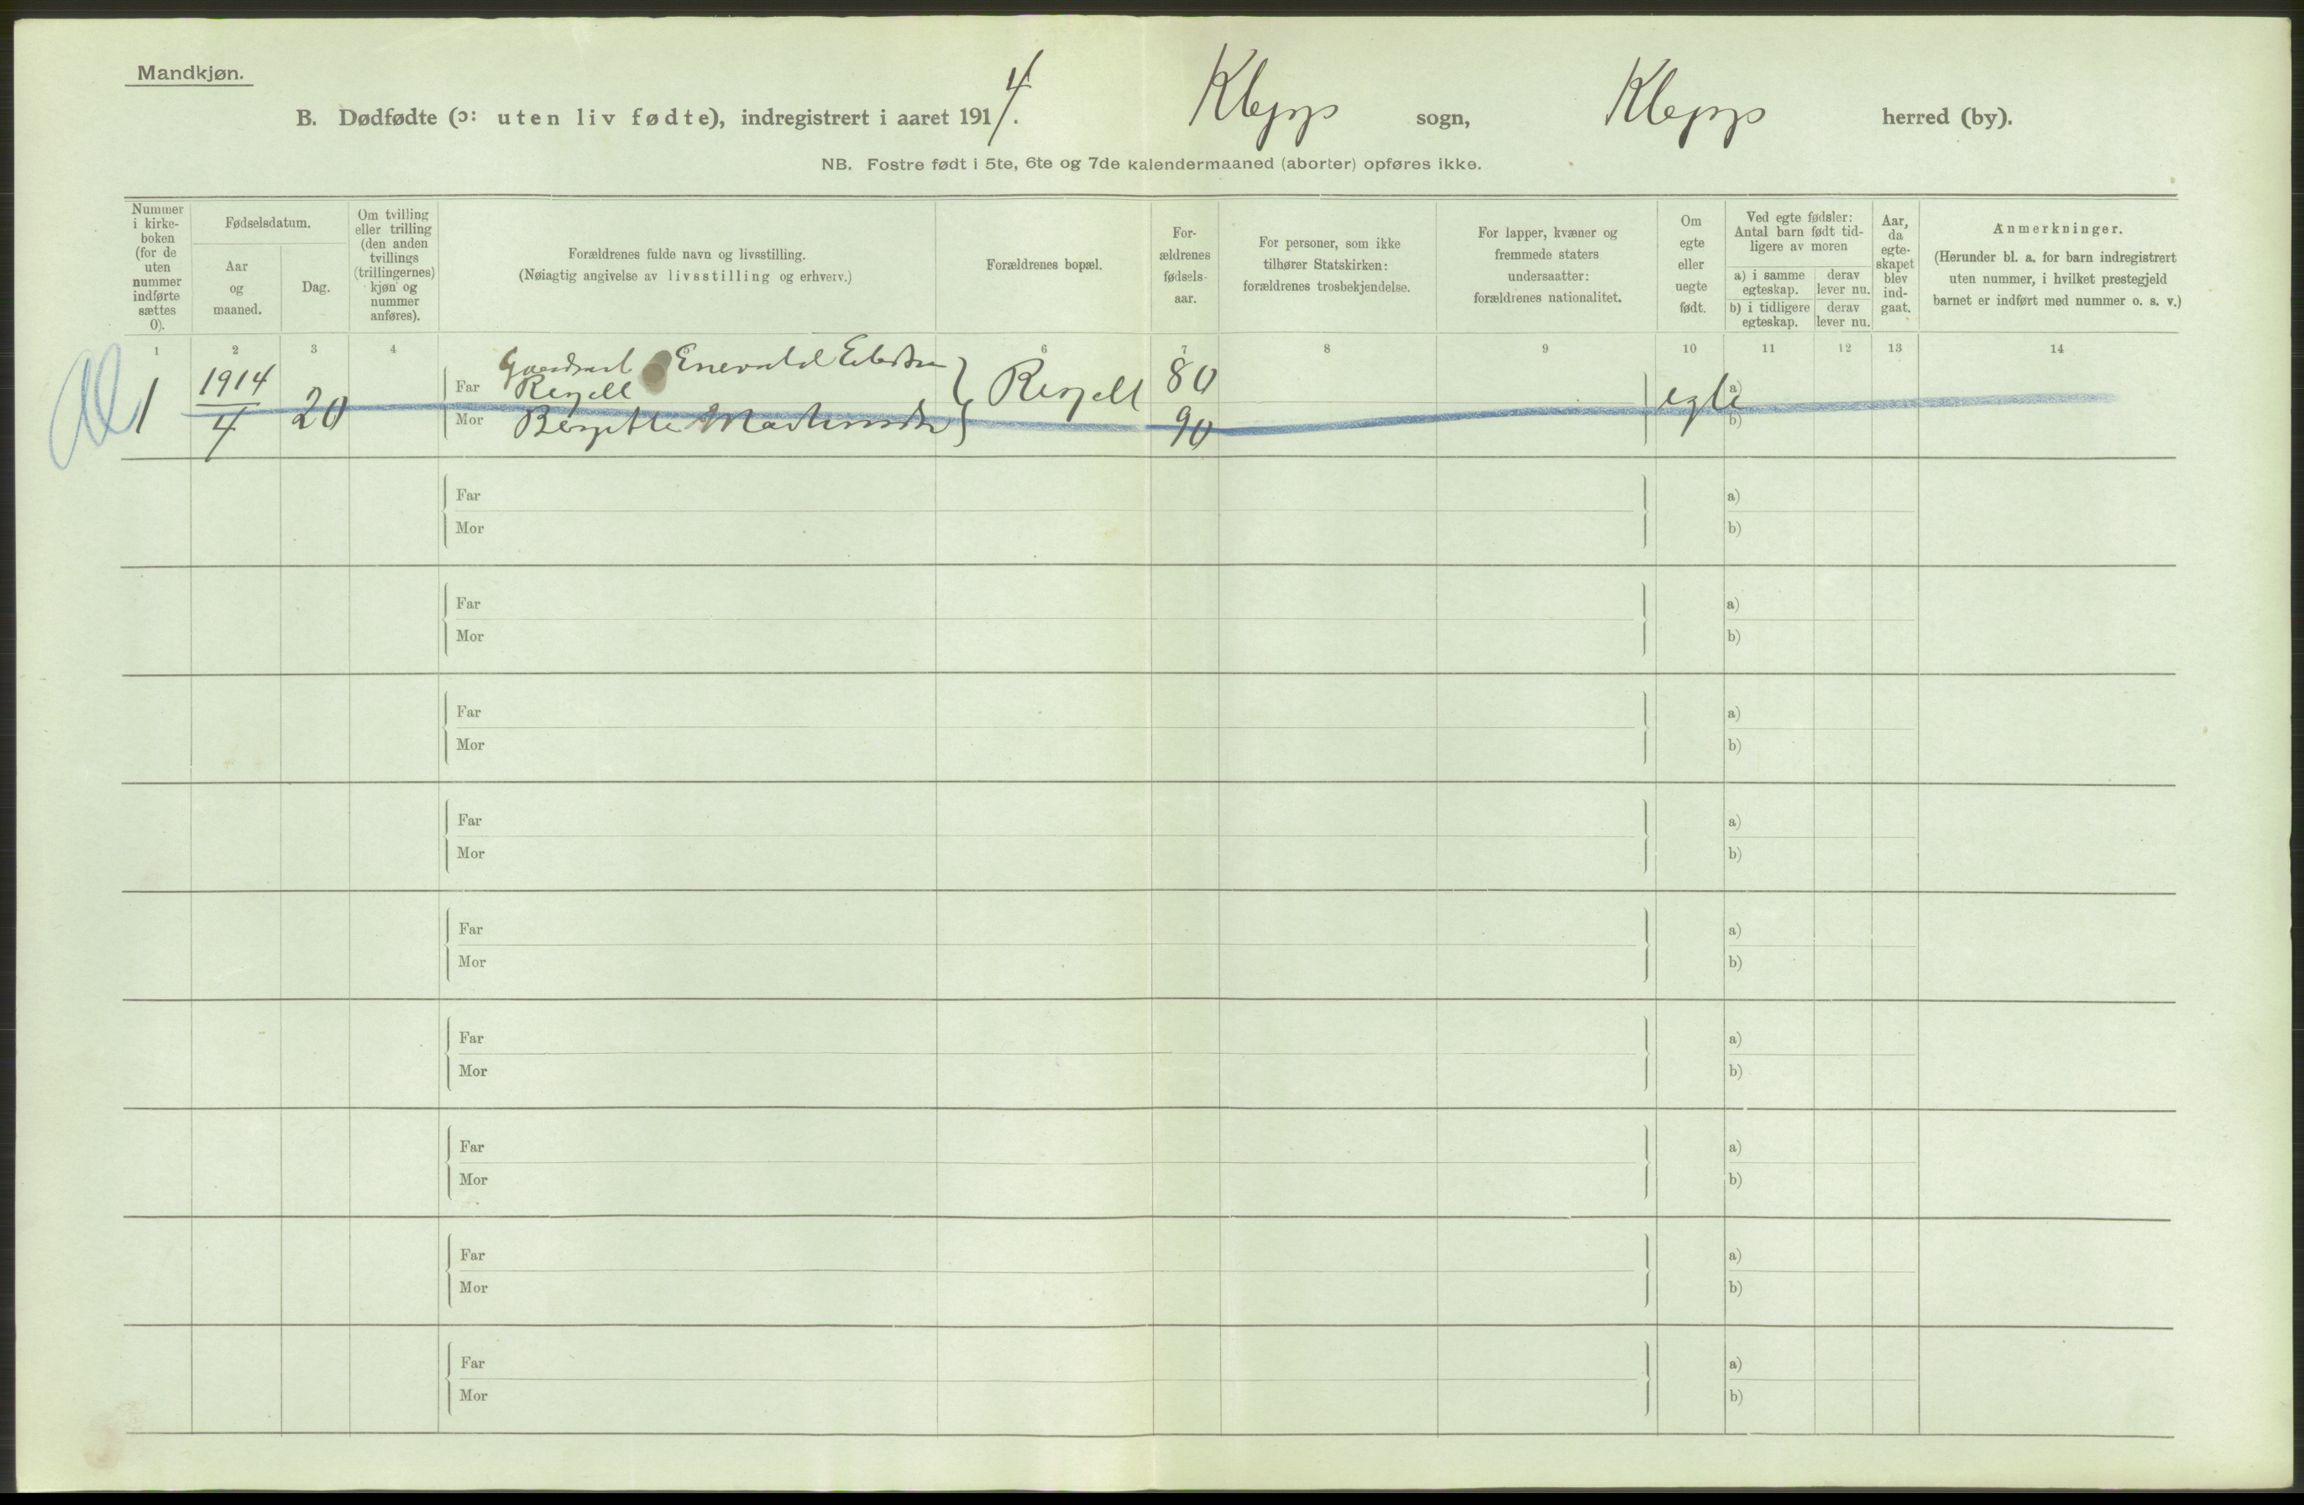 Mandkjøn.
B. Dødfødte (ɔ: uten liv fødte), indregistrert i aaret 1914. Klepp sogn, Klepp herred (by).
NB. Fostre født i 5te, 6te og 7de kalendermaaned (aborter) opføres ikke.
Nummer
i kirke-
boken
(for de
uten
nummer
indførte
sættes
0).
Fødselsdatum.
Aar
og
maaned.
Dag.
Om tvilling
eller trilling
(den anden
tvillings
(trillingernes)
kjøn og
nummer
anføres).
Forældrenes fulde navn og livsstilling.
(Nøiagtig angivelse av livsstilling og erhverv.)
Forældrenes bopæl.
For-
ældrenes
fødsels-
aar.
For personer, som ikke
tilhører Statskirken:
forældrenes trosbekjendelse.
For lapper, kvæner og
fremmede staters
undersaatter:
forældrenes nationalitet.
Om
egte
eller
uegte
født.
Ved egte fødsler:
Antal barn født tid-
ligere av moren
a) i samme
egteskap.
derav
lever nu.
b) i tidligere
egteskap.
derav
lever nu.
Aar,
da
egte-
skapet
blev
ind-
gaat.
Anmerkninger.
(Herunder bl. a. for barn indregistrert
uten nummer, i hvilket prestegjeld
barnet er indført med nummer o. s. v.)
1 2 3 4 6 7 8 9 10 11 12 13 14
1 1914 4 20
Far Enevald 80
Mor 90
egte a)
b)
Far a)
Mor b)
Far a)
Mor b)
Far a)
Mor b)
Far a)
Mor b)
Far a)
Mor b)
Far a)
Mor b)
Far a)
Mor b)
Far a)
Mor b)
Far a)
Mor b)